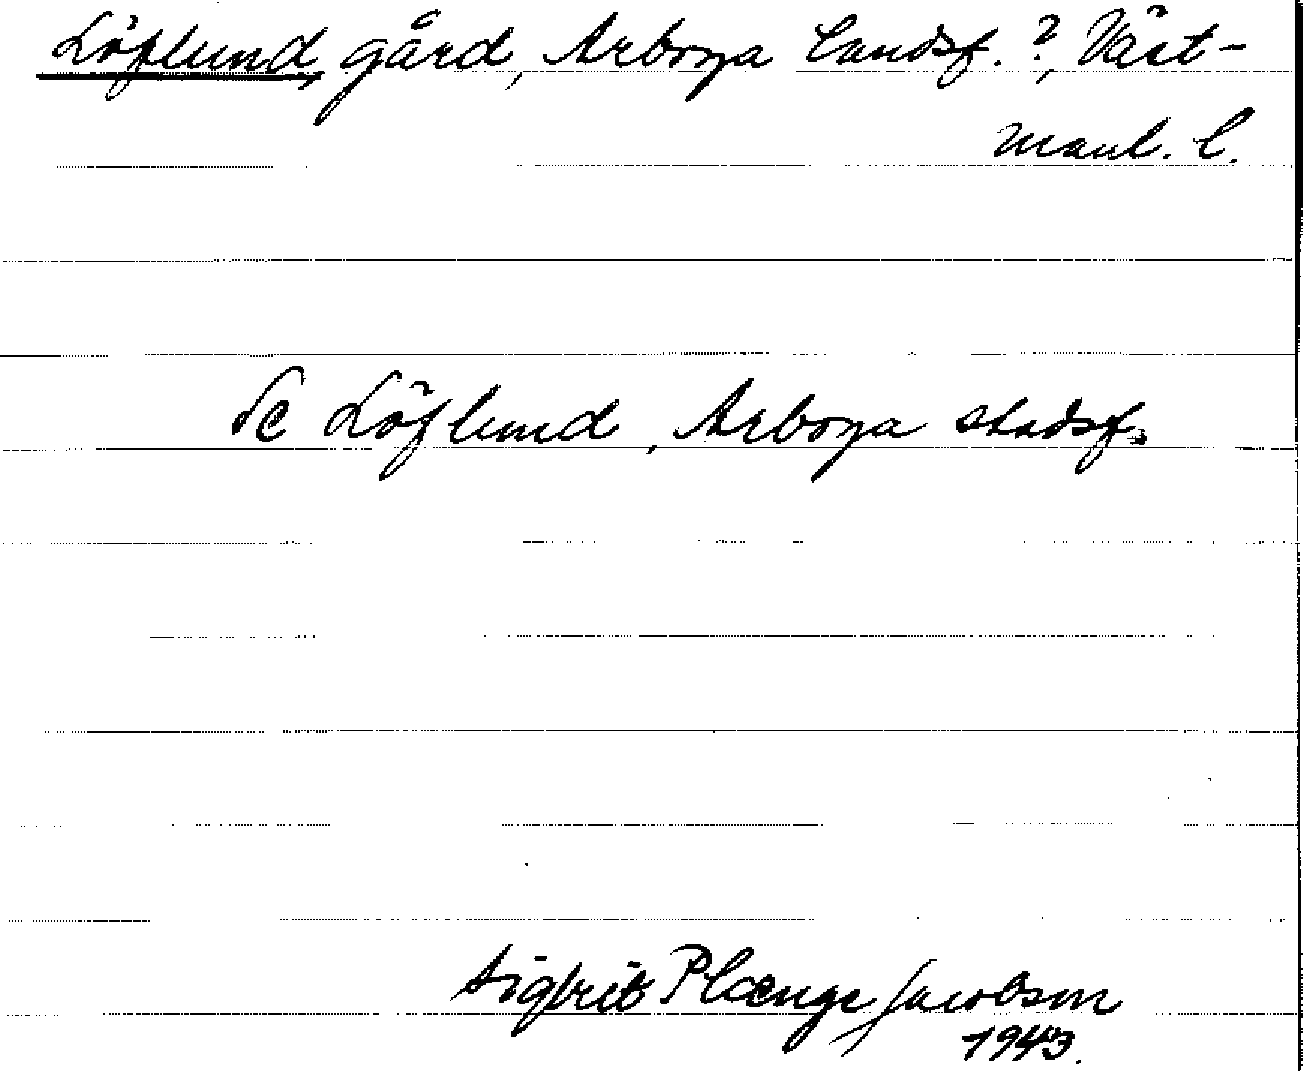 Löflund, gård, Arboga landsf.?, Väst-
manl. l.
Se Löflund, Arboga stadsf.
Sigfrit Plænge Jacobson
1943.